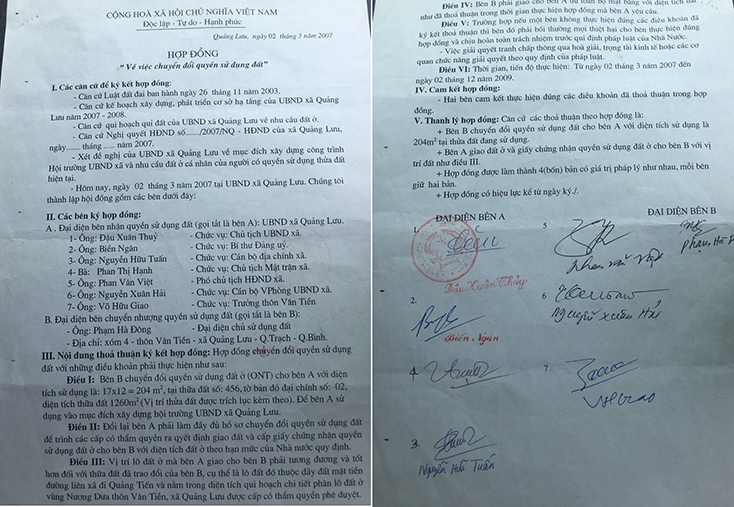 CỘNG HOÀ XÃ HỘI CHỦ NGHĨA VIỆT NAM
Độc lập - Tự do - Hạnh phúc
Quảng Lưu, ngày 02 tháng 3 năm 2007
HỢP ĐỒNG
“ Về việc chuyển đổi quyền sử dung đất”
I. Các căn cứ để ký kết hợp đồng:
- Căn cứ Luật đất đai ban hành ngày 26 th 11 năm 2003.
- Căn cứ kế hoạch xây dựng, phát triển cơ sở hạ tầng của UBND xã Quảng
Lưu năm 2007 - 2008.
- Căn cứ qui hoạch qui đất của UBND xã Quảng Lưu về nhu cầu đất ở.
- Căn cứ Nghị quyết HĐND số....../2007/NQ - HĐND của xã Quảng Lưu,
ngày...... tháng ..... năm 2007.
- Xét đề nghị của UBND xã Quảng Lưu về mục đích xây dựng công trình
Hội trường UBND xã và nhu cầu đất ở cá nhân của người có quyền sử dụng thửa đất
hiện tại.
- Hôm nay, ngày 02 tháng 3 năm 2007 tại UBND xã Quảng Lưu. Chúng tôi
thành lập hội đồng gồm các bên dưới đây:
II. Các bên ký hợp đồng:
A . Đại diện bên nhận quyền sử dụng đất (gọi tắt là bên A): UBND xã Quảng Lưu.
1- Ông: Đậu Xuân Thuỷ - Chức vụ: Chủ tịch UBND xã.
2- Ông: Biền Ngân - Chức vụ: Bí thư Đảng uỷ.
3- Ông: Nguyễn Hữu Tuấn - Chức vụ: Cán bộ địa chính xã.
4- Bà: Phan Thị Hạnh - Chức vụ: Chủ tịch Mặt trận xã.
5- Ông: Phan Văn Việt - Phó chủ tịch HĐND xã.
6- Ông: Nguyễn Xuân Hải - Chức vụ: Cán bộ VPhòng UBND xã.
7- Ông: Võ Hữu Giao - Chức vụ: Trưởng thôn Vân Tiền
B. Đại diện bên chuyển nhượng quyền sử dụng đất (gọi tắt là bên B):
- Ông: Phạm Hà Đông - Đại diện chủ sử dụng đất
- Địa chỉ: xóm 4 - thôn Vân Tiền - xã Quảng Lưu - Q.Trạch - Q.Bình.
III. Nội dung thoả thuận ký kết hợp đồng: Hợp đồng chuyển đổi quyền sử dụng
đất với những điều khoản phải thực hiện như sau:
Điều I: Bên B chuyển đổi quyền sử dụng đất ở (ONT) cho bên A với diện
tích sử dụng là: 17x12 = 204 m², tại thửa đất số: 456, tờ bản đồ đại chính số: 02,
diện tích thửa đất 1260m² (Vị trí thửa đất được trích lục kèm theo). Để bên A sử
dụng vào mục đích xây dựng hội trường UBND xã Quảng Lưu.
Điều II: Đổi lại bên A phải làm đầy đủ hồ sơ chuyển đổi quyền sử dụng đất
để trình các cấp có thẩm quyền ra quyết định giao đất và cấp giấy chứng nhận quyền
sử dụng đất ở cho bên B với diện tích đất ở theo hạn mức của Nhà nước quy định.
Điều III: Vị trí lô đất ở mà bên A giao cho bên B phải tương đương và tốt
hơn đối với thửa đất đã trao đổi của bên B, cụ thể là lô đất đó thuộc dãy đất mặt tiền
đường liên xã đi Quảng Tiến và nằm trong diện tích qui hoạch chi tiết phân lô đất ở
vùng Nương Dưa thôn Vân Tiền, xã Quảng Lưu được cấp có thẩm quyền phê duyệt.
Điều IV: Bên B phải giao cho bên A đủ toàn bộ mặt bằng với diện tích đất
như đã thoả thuận trong thời gian thực hiện hợp đồng mà bên A yêu cầu.
Điều V: Trường hợp nếu một bên không thực hiện đúng các điều khoản đã
ký kết thoả thuận thì bên đó phải bồi thường mọi thiệt hại cho bên thực hiện đúng
hợp đồng và chịu hoàn toàn trách nhiệm trước qui định pháp luật của Nhà Nước.
- Việc giải quyết tranh chấp thông qua hoà giải, trọng tài kinh tế hoặc các cơ
quan chức năng giải quyết theo quy định của pháp luật.
Điều VI: Thời gian, tiến độ thực hiện: Từ ngày 02 tháng 3 năm 2007 đến
ngày 02 tháng 12 năm 2009.
IV. Cam kết hợp đồng:
- Hai bên cam kết thực hiện đúng các điều khoản đã thoả thuận trong hợp
đồng.
V. Thanh lý hợp đồng: Căn cứ các thoả thuận theo hợp đồng là:
+ Bên B chuyển đổi quyền sử dụng đất cho bên A với diện tích sử dụng là
204m² tại thửa đất đang sử dụng.
+ Bên A giao đất ở và giấy chứng nhận quyền sử dụng đất ở cho bên B với vị
trí đất như điều III.
+ Hợp đồng được làm thành 4(bốn) bản có giá trị pháp lý như nhau, mỗi bên
giữ hai bản.
+ Hợp đồng có hiệu lực kể từ ngày ký./.
ĐẠI DIỆN BÊN A
ĐẠI DIỆN BÊN B
1.
5
Đậu Xuân Thủy
Phan Văn Việt
2.
Biền Ngân
6
Nguyễn Xuân Hải
4
7
3.
Nguyễn Hữu Tuấn